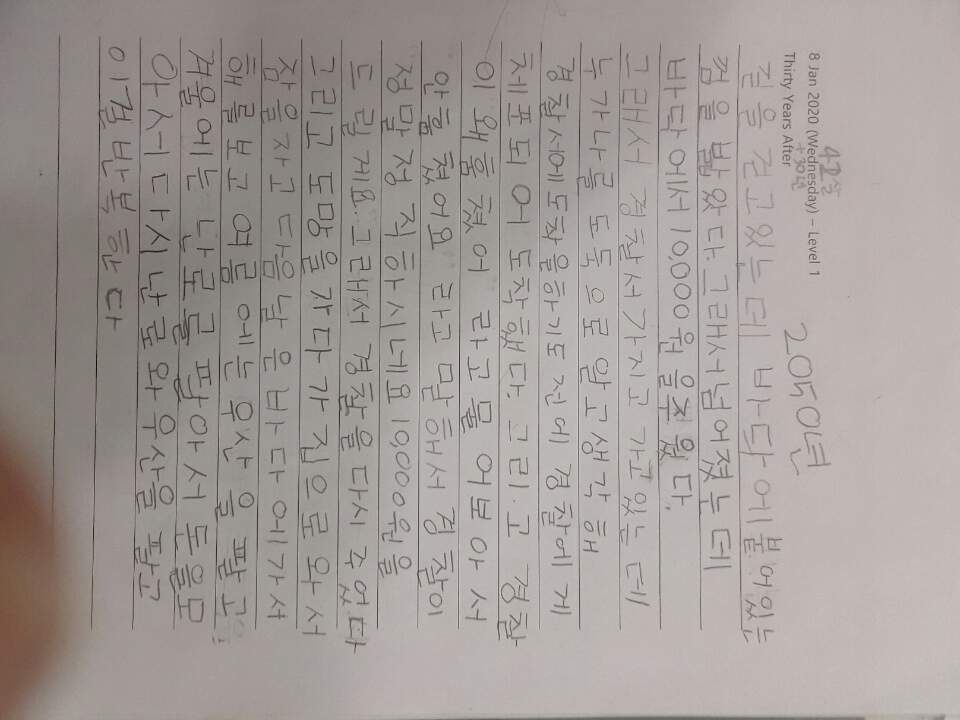 8 Jan 2020 (Wednesday) - Level 1
Thirty Years After
42살
+30년
2050년
길을 걷고있는데 바닥에붙어있는
껌을 밟았다. 그래서넘어졌는데
바닥에서 10,000원을주웠다.
그래서 경찰서가지고 가고있는데
누가나를 도둑으로 알고생각해
경찰서에도착을하기도 전에 경찰에게
체포되어 도착했다. 그리고 경찰
이왜훔쳤어 라고물어보아서
안훔쳤어요 라고 말해서 경찰이
정말정직하시네요 10,000원을
드릴게요. 그래서 경찰을다시주었다
그리고 도망을가다가집으로와서
잠을자고 다음날은바다에가서
해를보고 여름에는우산을팔고
겨울에는난로를팔아서돈을모
아서다시난로와우산을팔고
이걸반복한다